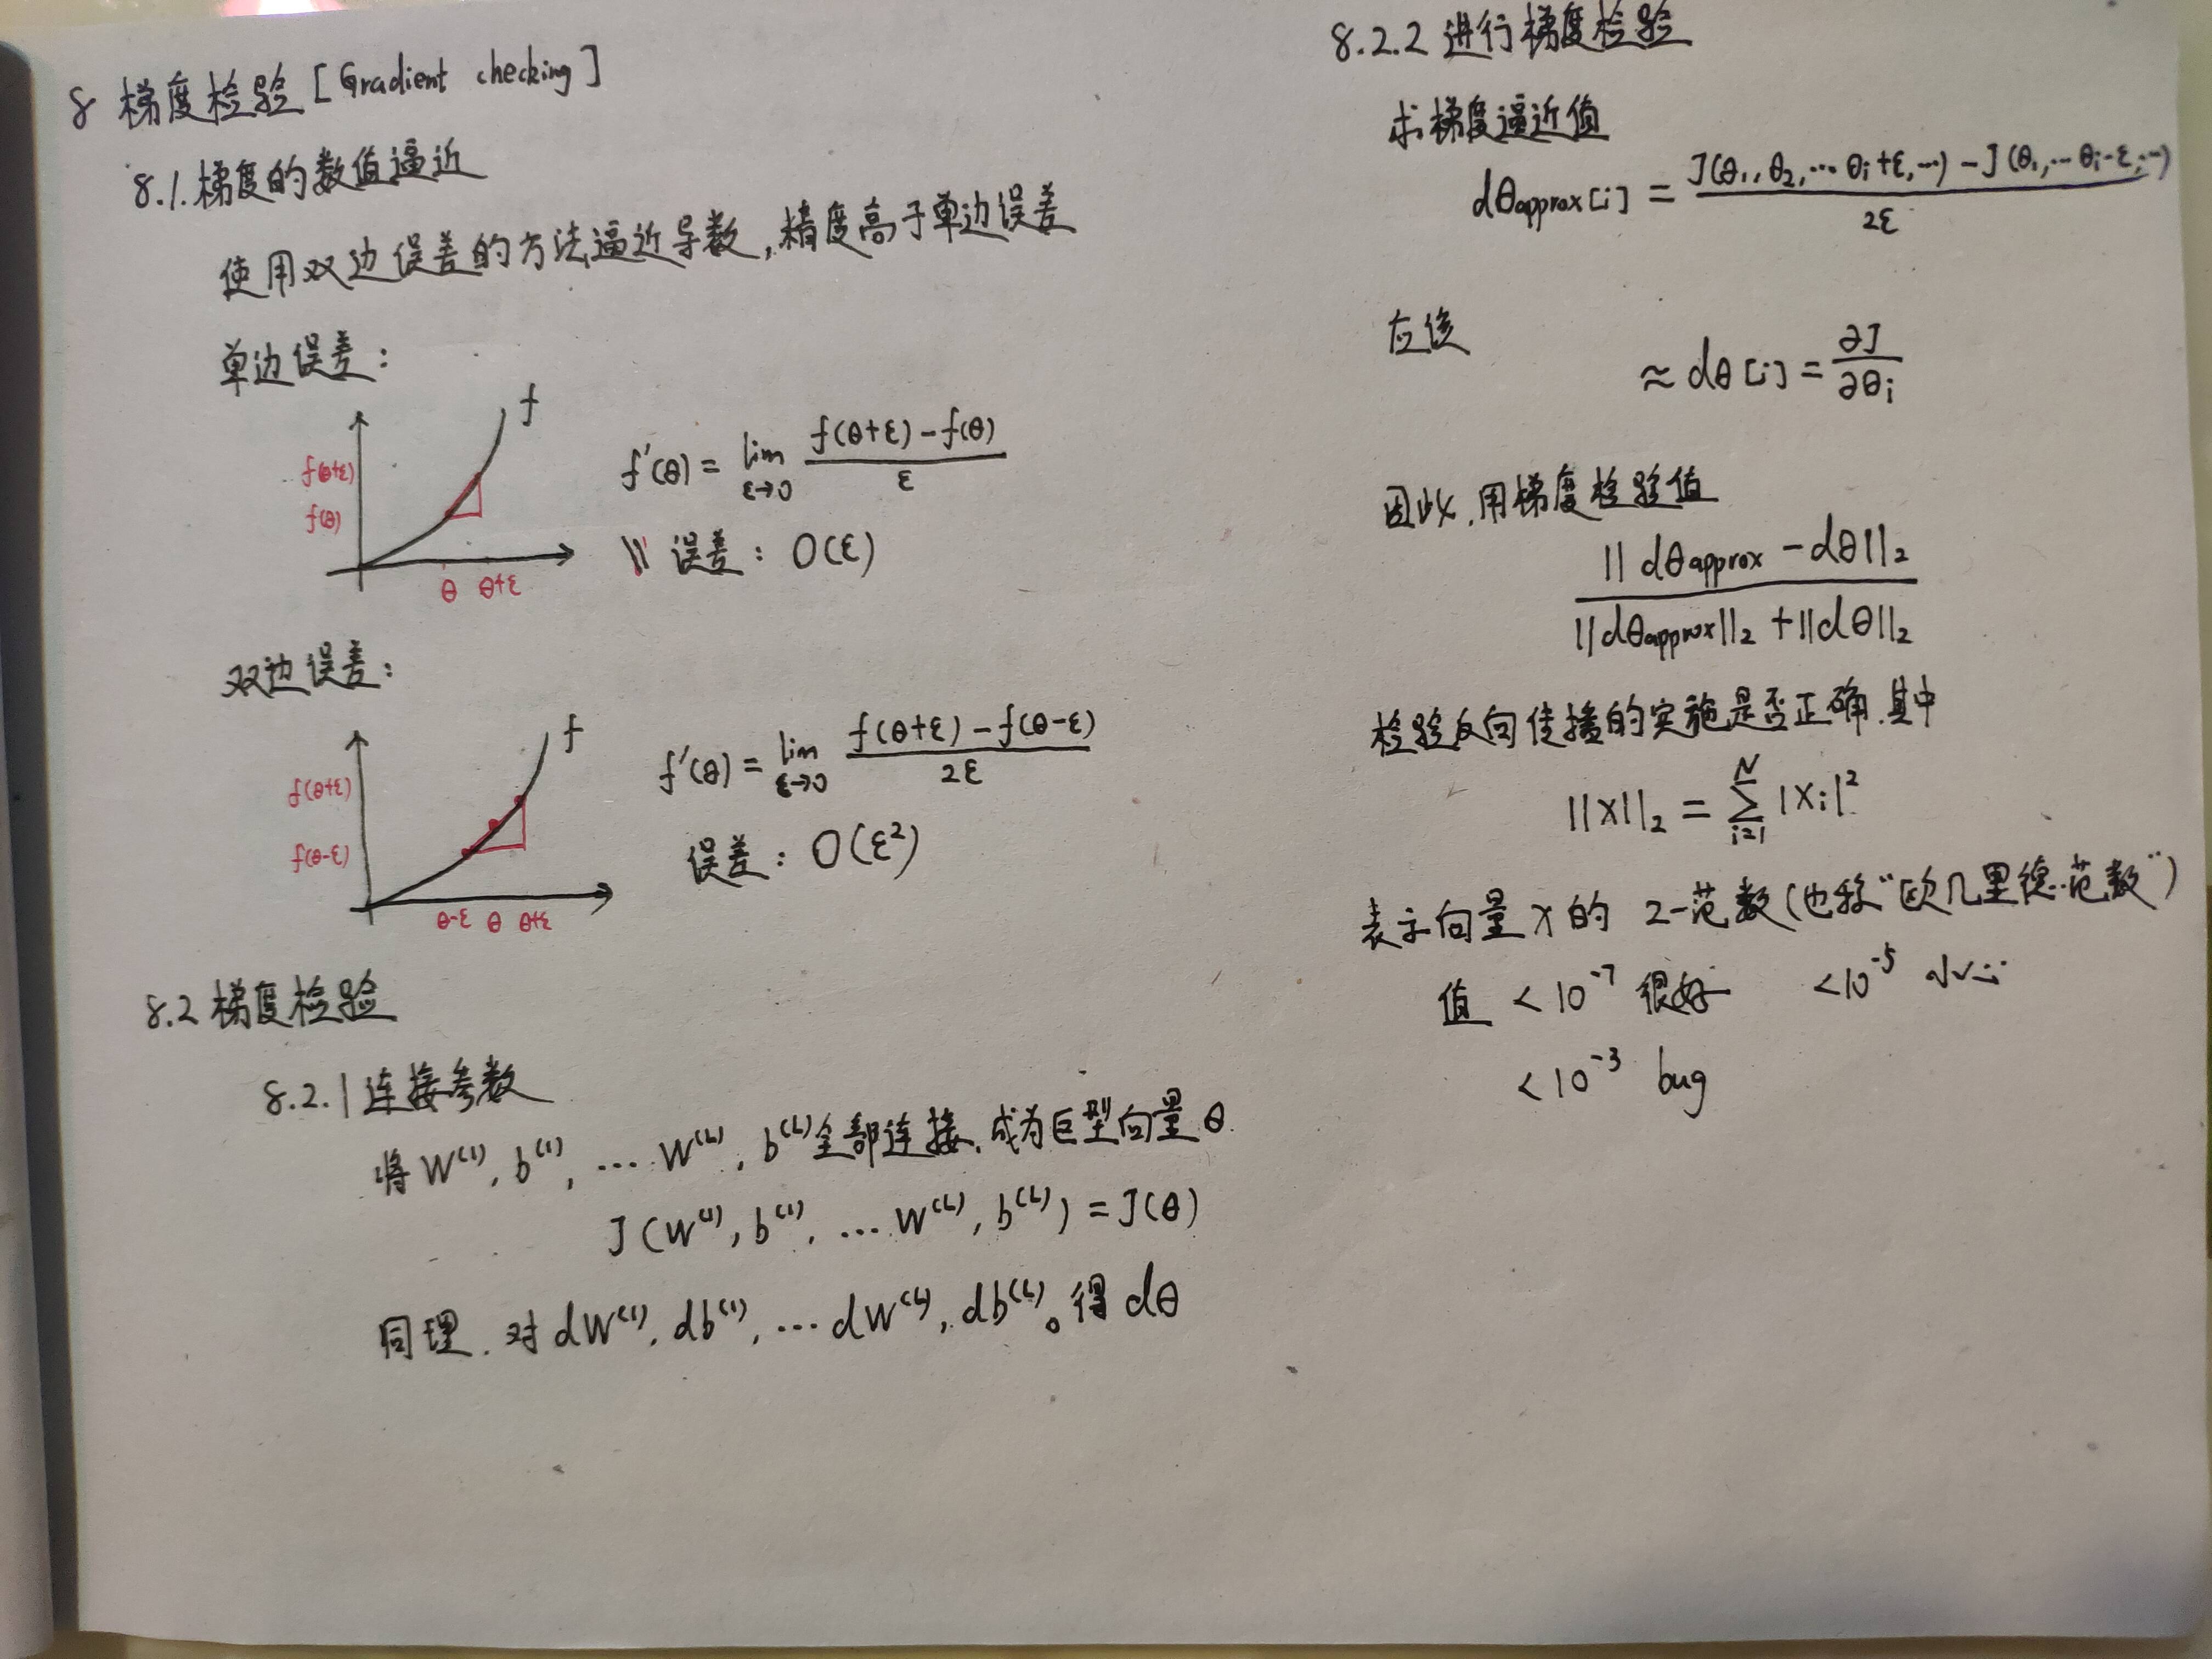 8 梯度检验 [Gradient checking]
8.1.梯度的数值逼近
使用双边误差的方法逼近导数,精度高于单边误差
单边误差:
f
f(θ+ε)
f(θ)
θ θ+ε
f'(θ) = lim ε→0 f(θ+ε)-f(θ) / ε
误差: O(ε)
双边误差:
f
f(θ+ε)
f(θ-ε)
θ-ε θ θ+ε
f'(θ) = lim ε→0 f(θ+ε)-f(θ-ε) / 2ε
误差: O(ε²)
8.2 梯度检验
8.2.1 连接参数
将 W⁽¹⁾, b⁽¹⁾, … W⁽ᴸ⁾, b⁽ᴸ⁾全部连接,成为巨型向量 θ.
J(W⁽¹⁾, b⁽¹⁾, … W⁽ᴸ⁾, b⁽ᴸ⁾) = J(θ)
同理,对 dW⁽¹⁾, db⁽¹⁾, … dW⁽ᴸ⁾, db⁽ᴸ⁾。得 dθ
8.2.2 进行梯度检验
求梯度逼近值
dθapprox[i] = J(θ₁, θ₂, … θi+ε, …) - J(θ₁, … θi-ε, …) / 2ε
应使
≈ dθ[i] = ∂J / ∂θi
因此,用梯度检验值
||dθapprox - dθ||₂ / ||dθapprox||₂ + ||dθ||₂
检验反向传播的实施是否正确.其中
||x||₂ = Σ i=1 N |xi|²
表示向量 x 的 2-范数(也称"欧几里德范数")
值 < 10⁻⁷ 很好 < 10⁻⁵ 小心
< 10⁻³ bug